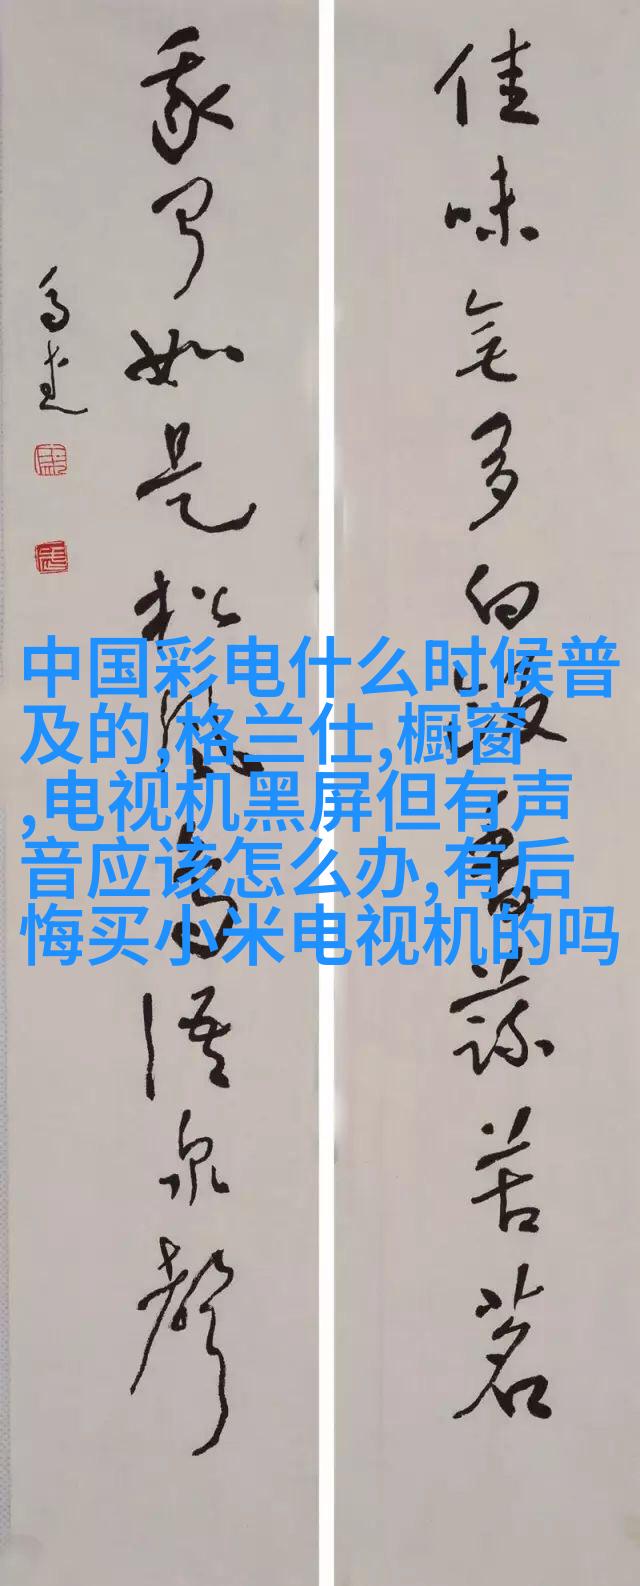 佳味無多白飯香蔬苦茗
我聞如是松風鳥語泉聲
中国彩电什么时候普
及的,格兰仕,橱窗
,电视机黑屏但有声
音应该怎么办,有后
悔买小米电视机的吗